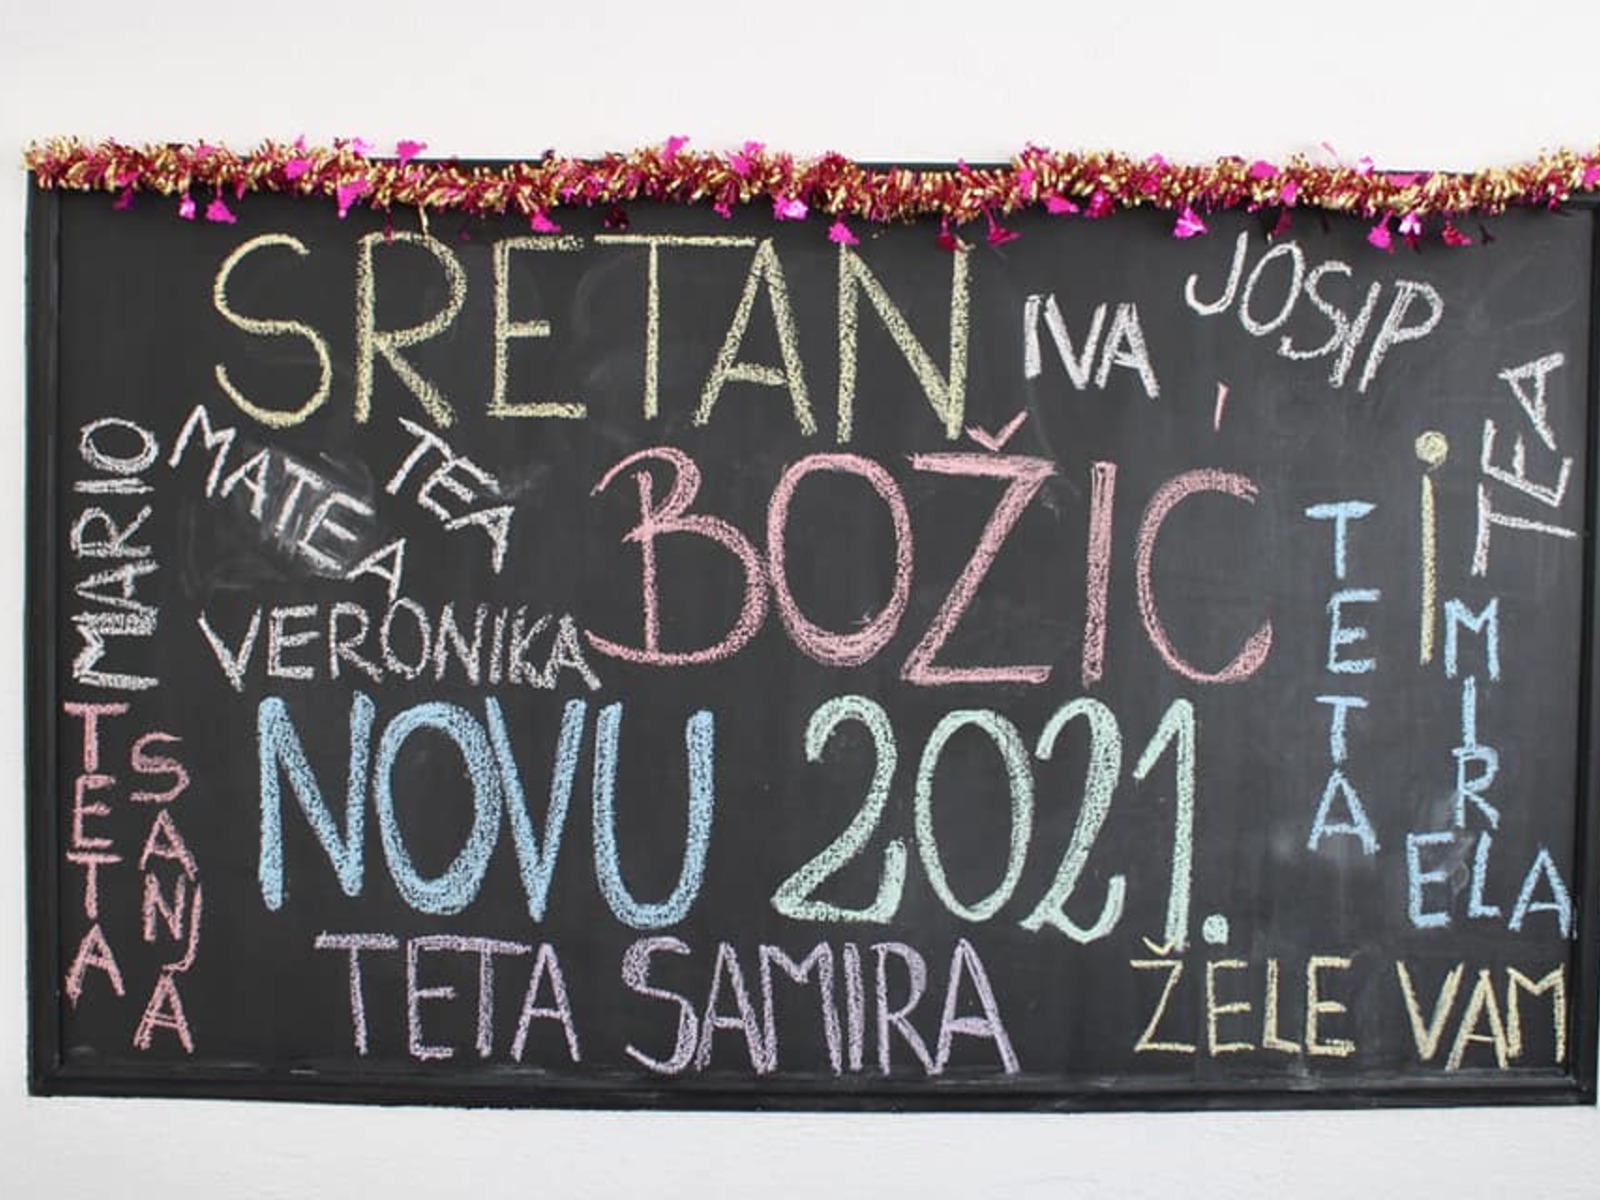 SRETAN
IVA
JOSIP
TEA
MARIO
MATEA
TEA
BOŽIĆ
i
VERONIKA
NOVU 2021.
TETA
MIRELA
TETA
SANJA
TETA SAMIRA
ŽELE VAM